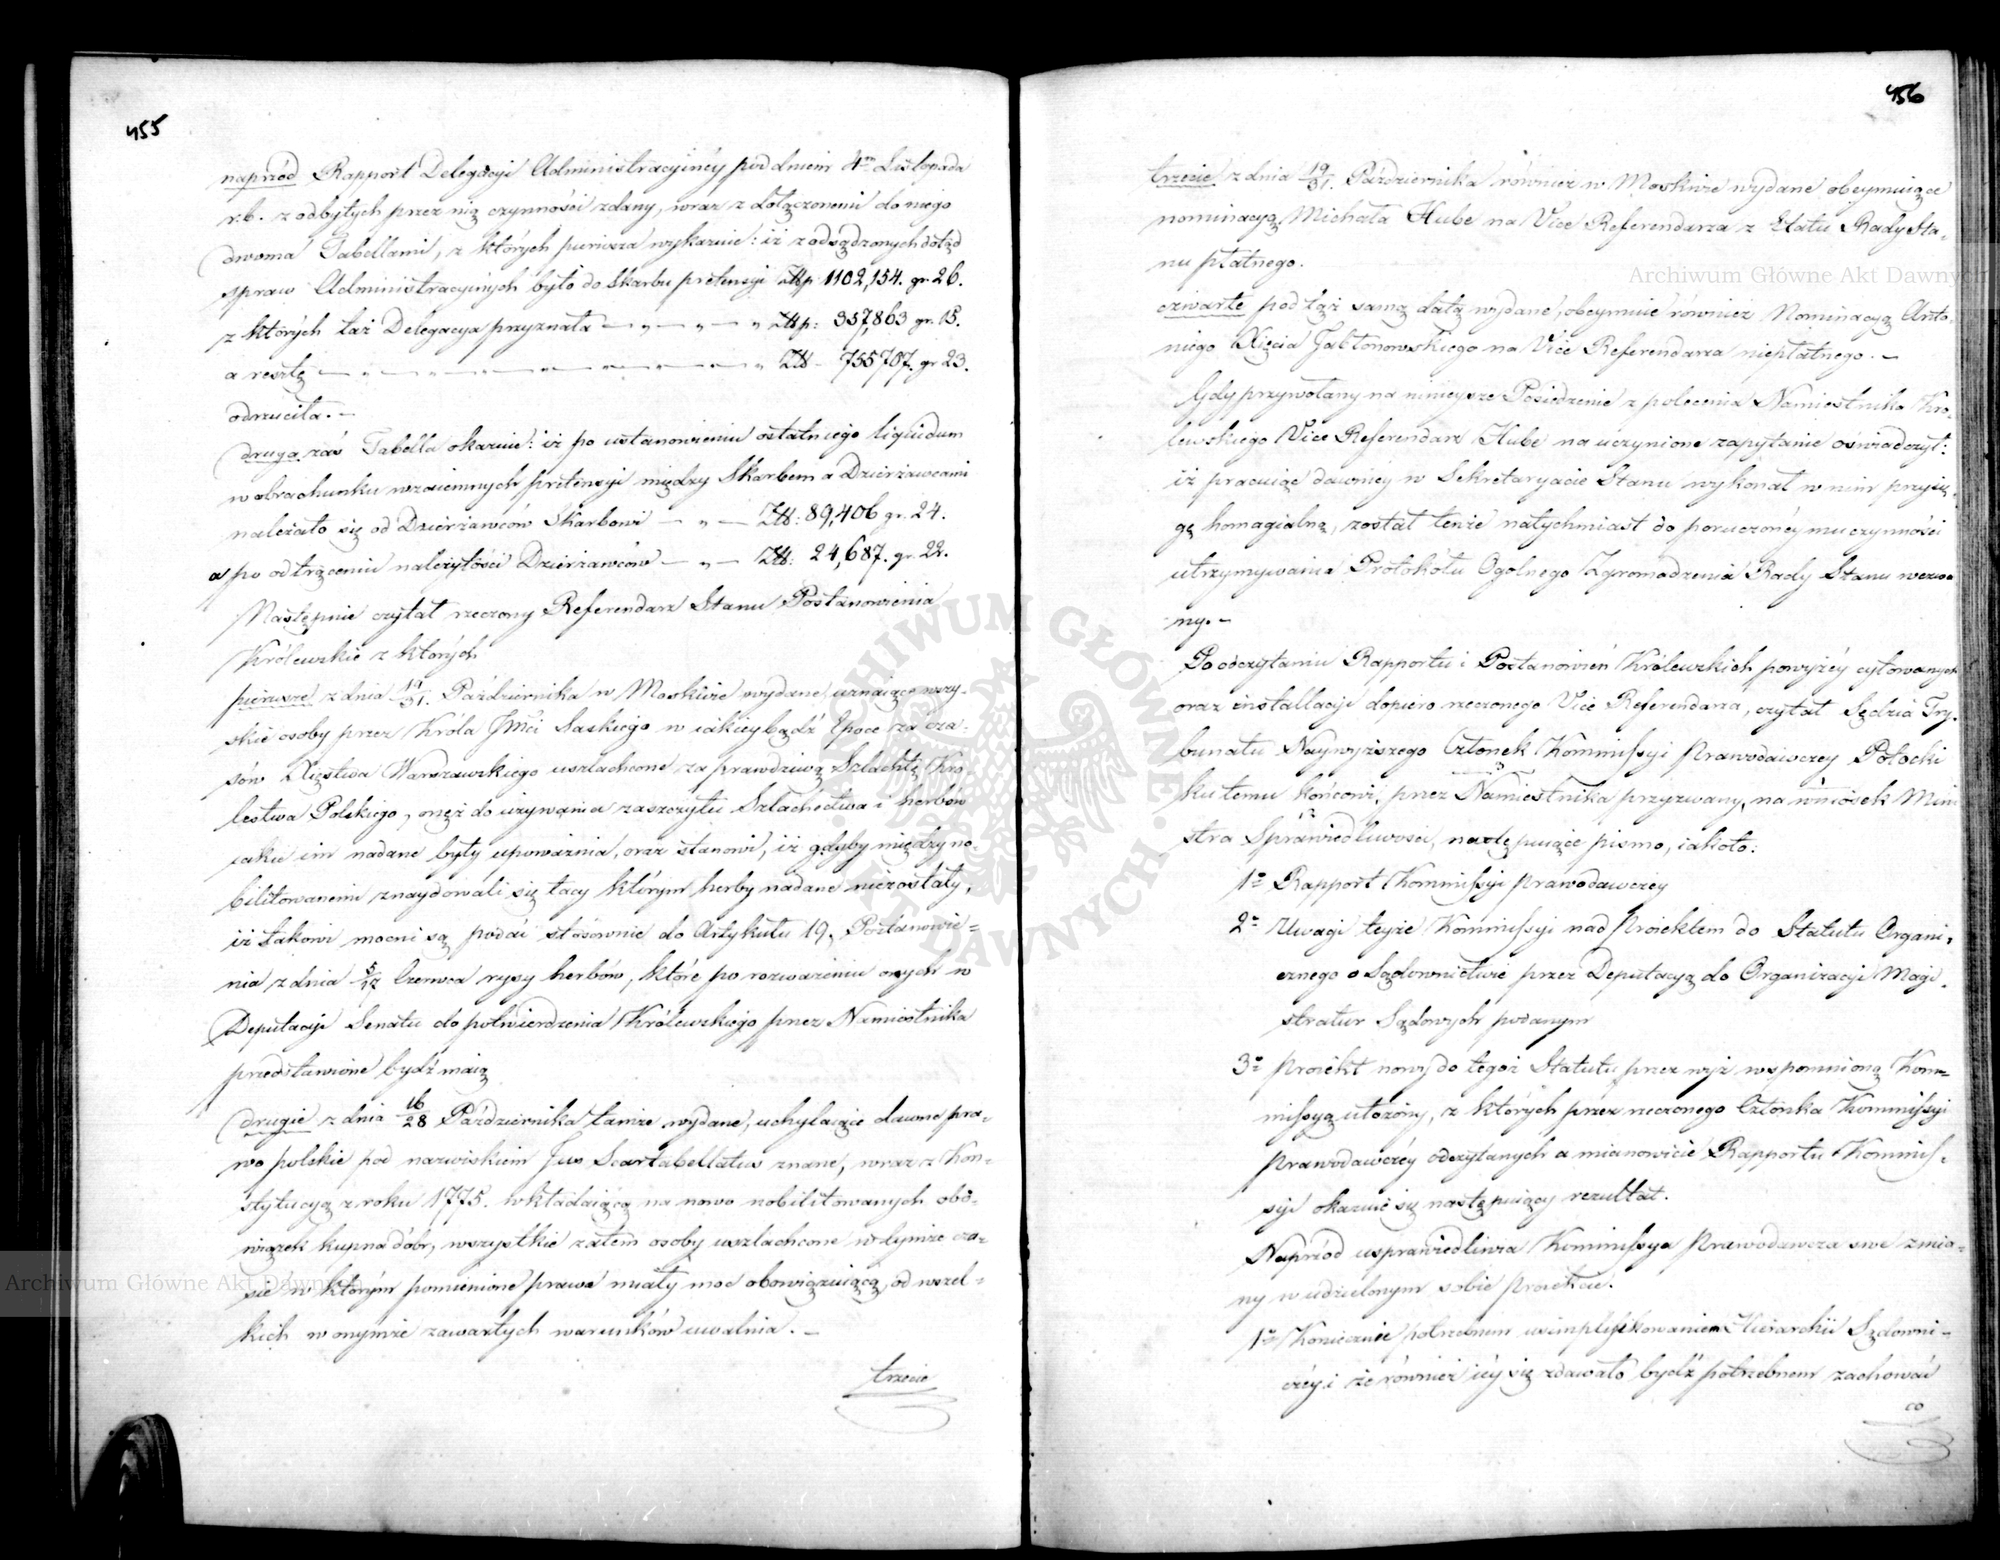 455
naprzód Rapport Delegacyi Administracyinéy pod dniem 4m Listopada
r.b. z odbytych przez nią czynności zdany, wraz z dołączonemi do niego
dwoma Tabellami, z których pierwsza wykazuie: iż z odsądzonych dotąd
spraw Administracyinych było do Skarbu pretensyi Złp 1102,154. gr. 26.
z których taż Delegacya przyznała — „ — „ — „ Złp: 357,863 gr. 15.
a resztę — „ — „ — „ — „ — „ — „ Zł – 755707. gr 23.
odrzuciła. –
druga zaś Tabella okazuie: iż po ustanowieniu ostatniego liquidum
w obrachunku wzaiemnych pretensyi między Skarbem a Dzierżawcami
należało się od Dzierżawców Skarbowi — „ — Zł: 89,406 gr. 24.
a po odtrąceniu należytości Dzierżawców — „ — Zł: 24,687. gr. 22.
Następnie czytał rzeczony Referendarz Stanu Postanowienia
Królewskie z których
pierwsze z dnia 19/31. Października w Moskwie wydane, uznaiące wszy-
stkie osoby przez Króla Jmći Saskiego w iakieybądź Epoce za cza-
sów Xięstwa Warszawskiego uszlachcone za prawdziwą Szlachtę Kró-
lestwa Polskiego, onęż do używania zaszczytu Szlachectwa i herbów
iakie im nadane były upoważnia, oraz stanowi, iż gdyby między no-
bilitowanemi znaydowali się tacy którym herby nadane niezostały,
iż takowi mocni są podać stósownie do Artykułu 19. Postanowie-
nia z dnia 5/17 Czerwca rysy herbów, które po rozważeniu onych w
Deputacyi Senatu do potwierdzenia Królewskiego przez Namiestnika
przedstawione bydź maią
drugie z dnia 16/28 Października tamże wydane, uchylaiące dawne pra-
wo polskie pod nazwiskiem Jus Scartabellatus znane, wraz z Kon-
stytucyą z roku 1775. wkładaiącą na nowo nobilitowanych obo-
wiązek kupna dóbr, wszystkie zatem osoby uszlachcone w tymże cza-
sie w którym pomienione prawa miały moc obowiązuiącą, od wszel-
kich w onymże zawartych warunków uwalnia. –
trzecie
456
trzecie z dnia 19/31. Października również w Moskwie wydane obeymuiące
nominacyą Michała Hube na Vice Referendarza z Etatu Rady Sta-
nu płatnego.
czwarte pod tąż samą datą wydane, obeymuie również Nominacyą Anto-
niego Xięcia Jabłonowskiego na Vice Referendarza niepłatnego. –
Gdy przywołany na ninieysze Posiedzenie z polecenia Namiestnika Kró-
lewskiego Vice Referendarz Hube na uczynione zapytanie oświadczył:
iż pracuiąc dawniéy w Sekretaryacie Stanu wykonał w nim przysię-
gę homagialną, został tenże natychmiast do poruczonéy mu czynności
utrzymywania Protokółu Ogólnego Zgromadzenia Rady Stanu wezwa
ny. –
Po odczytaniu Rapportu i Postanowień Królewskich powyżéy cytowanych
oraz installacyi dopiero rzeczonego Vice Referendarza, czytał Sędzia Try-
bunału Naywyższego Członek Kommissyi Prawodawczey Potocki
ku temu końcowi, przez Namiestnika przyzwany, na wniosek Mini
stra Sprawiedliwości, następuiące pismo, iakoto:
1o Rapport Kommissyi Prawodawczey
2o Uwagi teyże Kommissyi nad Proiektem do Statutu Organi-
cznego o Sądownictwie przez Deputacyą do Organizacyi Magi-
stratur Sądowych podanym
3o Proiekt nowy do tegoż Statutu przez wyż wspomnioną Kom-
missyą ułożony, z których przez rzeczonego Członka Kommissyi
Prawodawczéy odczytanych a mianowicie Rapportu Kommis-
syi okazuie się następuiący rezultat.
Naprzód usprawiedliwia Kommissya Prawodawcza swe zmia-
ny w udzielonym sobie Proiekcie.
1o Koniecznie potrzebnem usimplifikowaniem Hierarchii Sądowni-
czéy i że również iéy się zdawało bydź potrzebnem zachować
co
Archiwum Główne Akt Dawnych
Archiwum Główne Akt Dawnych
ARCHIWUM GŁÓWNE AKT DAWNYCH